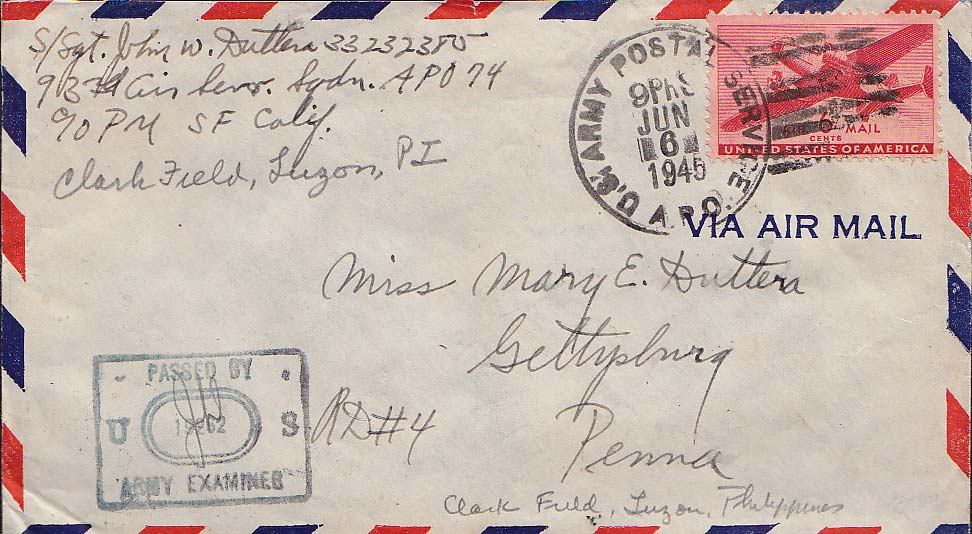 S/Sgt. John W. Duttera 33232385
93rd Air Serv. Sqdn. APO 74
% PM SF Calif.
Clark Field, Luzon, PI
U.S. ARMY POSTAL SERVICE
9 PM
JUN
6
1945
A.P.O.
6
AIR MAIL
CENTS
UNITED STATES OF AMERICA
VIA AIR MAIL
Miss Mary E. Duttera
Gettysburg
RD#4
Penna
PASSED BY
U S
ARMY EXAMINER
Clark Field, Luzon, Philippines